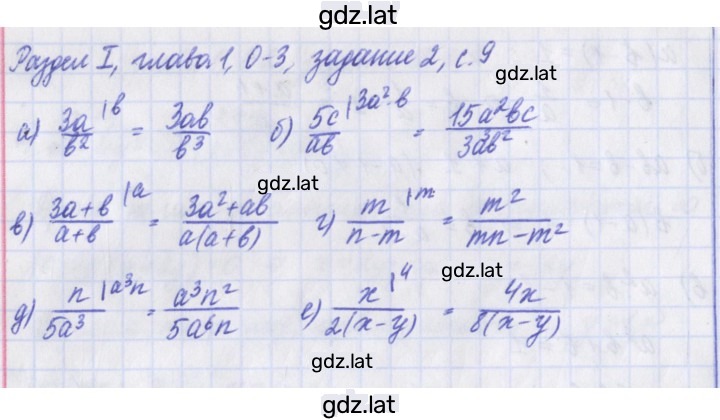 gdz.lat
Раздел I, глава 1, О-3, задание 2, с.9
gdz.lat
а) 3a/b² |b = 3ab/b³ б) 5c/ab |3a²b = 15a²bc/3a³b²
gdz.lat
в) 3a+b/a+b |a = 3a²+ab/a(a+b) г) m/n-m |m = m²/mn-m²
gdz.lat
д) n/5a³ |a³n = a³n²/5a⁶n е) x/2(x-y) |4 = 4x/8(x-y)
gdz.lat
gdz.lat